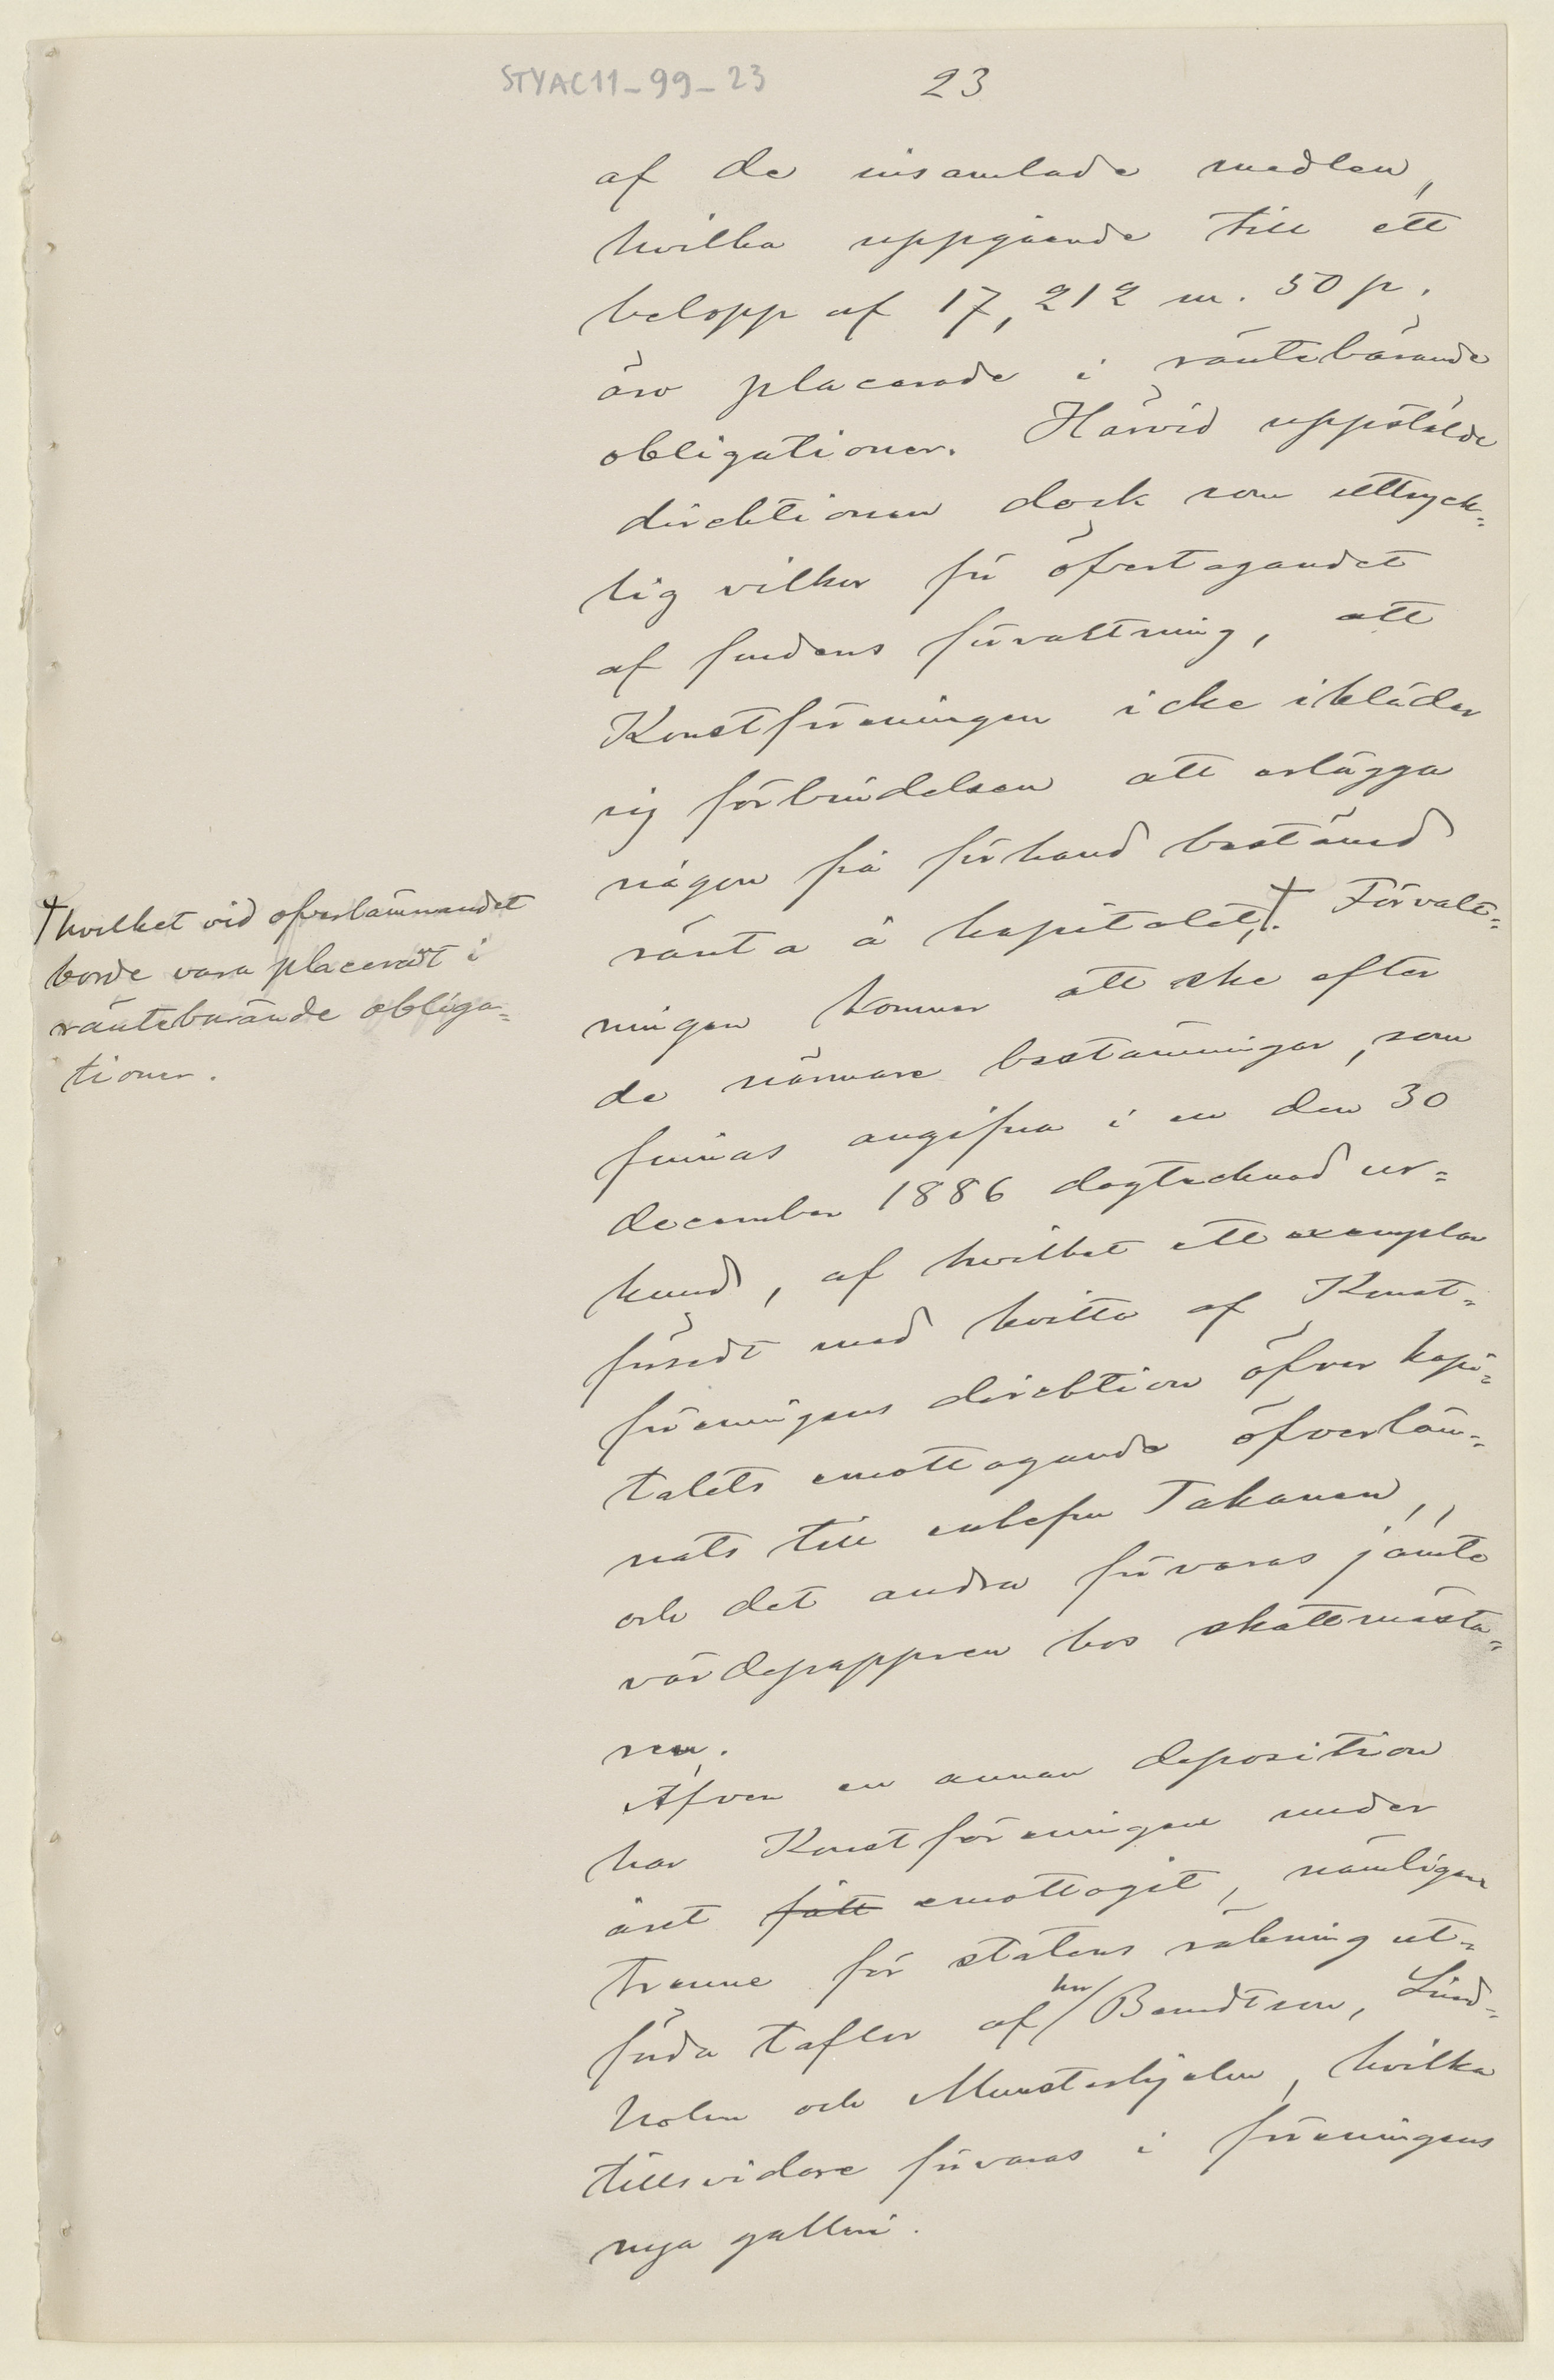 STYAC11-99-23
23
af de insamlade medlen,
hvilka uppgående till ett
belopp af 17,212 m. 50 p.
äro placerade i räntebärande
obligationer. Härvid uppstälde
direktionen dock som uttryck=
lig vilkor för öfvertagandet
af fondens förvaltning, att
Konstföreningen icke ikläder
sig förbindelsen att erlägga
någon på förhand bestämd
ränta å kapitalet,†. Förvalt=
ningen kommer att ske efter
de närmare bestämningar, som
finnas angifna i en den 30
december 1886 dagtecknad ur=
kund, af hvilket ett exemplar
försedt med kvitto af Konst=
föreningens direktion öfver kapi=
talets emottagande öfverläm=
nats till enkefru Takanen,
och det andra förvaras jämte
värdepappren hos skattmästa=
ren.
Äfven en annan deposition
har Konstföreningen under
året fått emottagit, nämligen
trenne för statens räkning ut=
förda taflor af hrr Berndtson, Lind=
holm och Munsterhjelm, hvilka
tillsvidare förvaras i föreningens
nya galleri.
† hvilket vid öfverlämnandet
borde vara placeradt i
räntebärande obliga=
tioner.